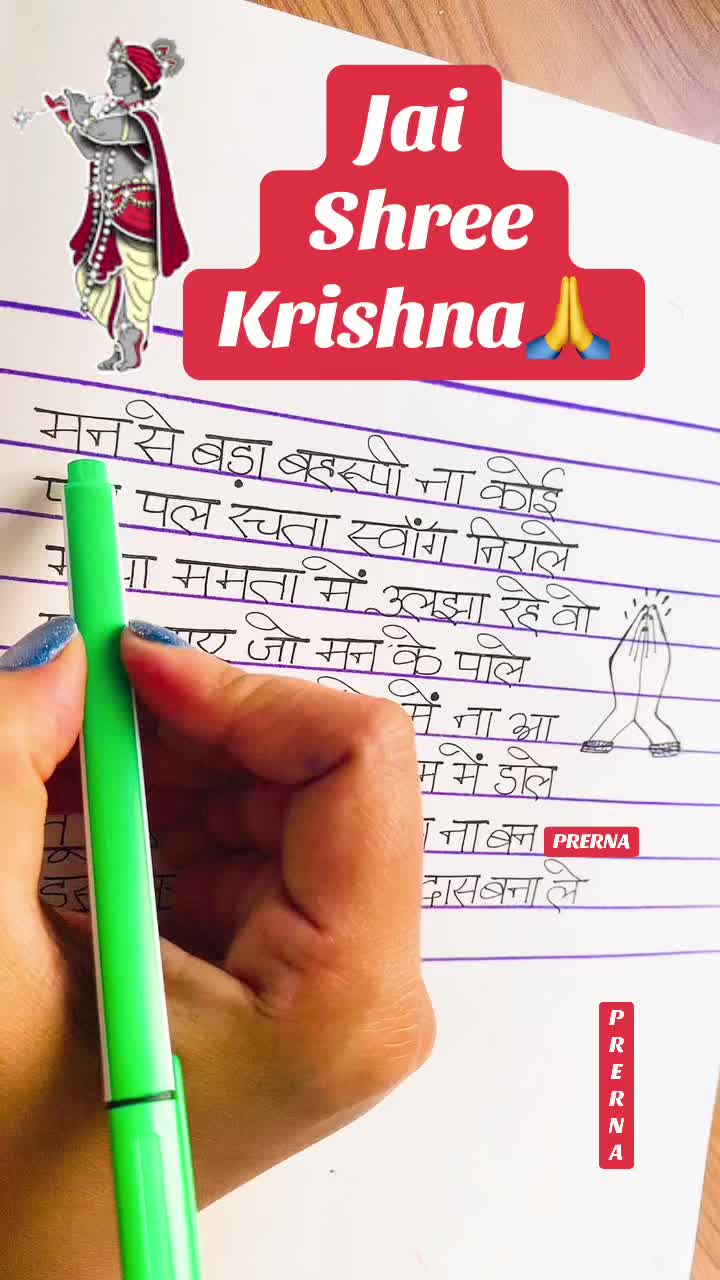 Jai
Shree
Krishna🙏
मन से बड़ा बहरूपी ना कोई
पल रचता स्वाँग निराले
ममता में उलझा रहे वो
जो मन के पाले
में ना आ
में डाले
ना बन
PRERNA
दास बना ले
PRERNA